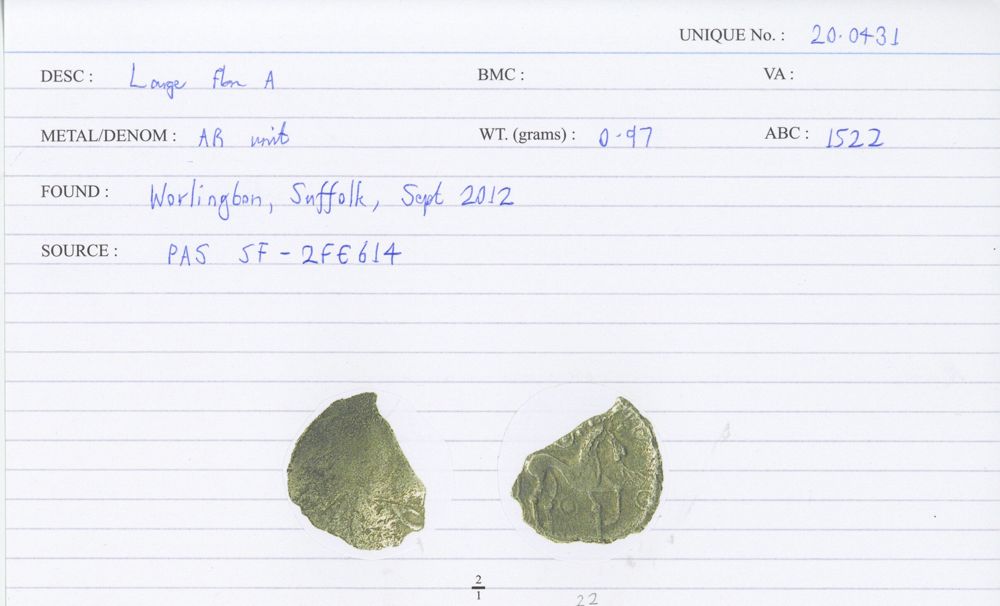 UNIQUE No. : 20.0431
DESC : Large flan A BMC : VA :
METAL/DENOM : AR unit WT. (grams) : 0.97 ABC : 1522
FOUND : Worlington, Suffolk, Sept 2012
SOURCE : PAS SF - 2FE614
2
1
22